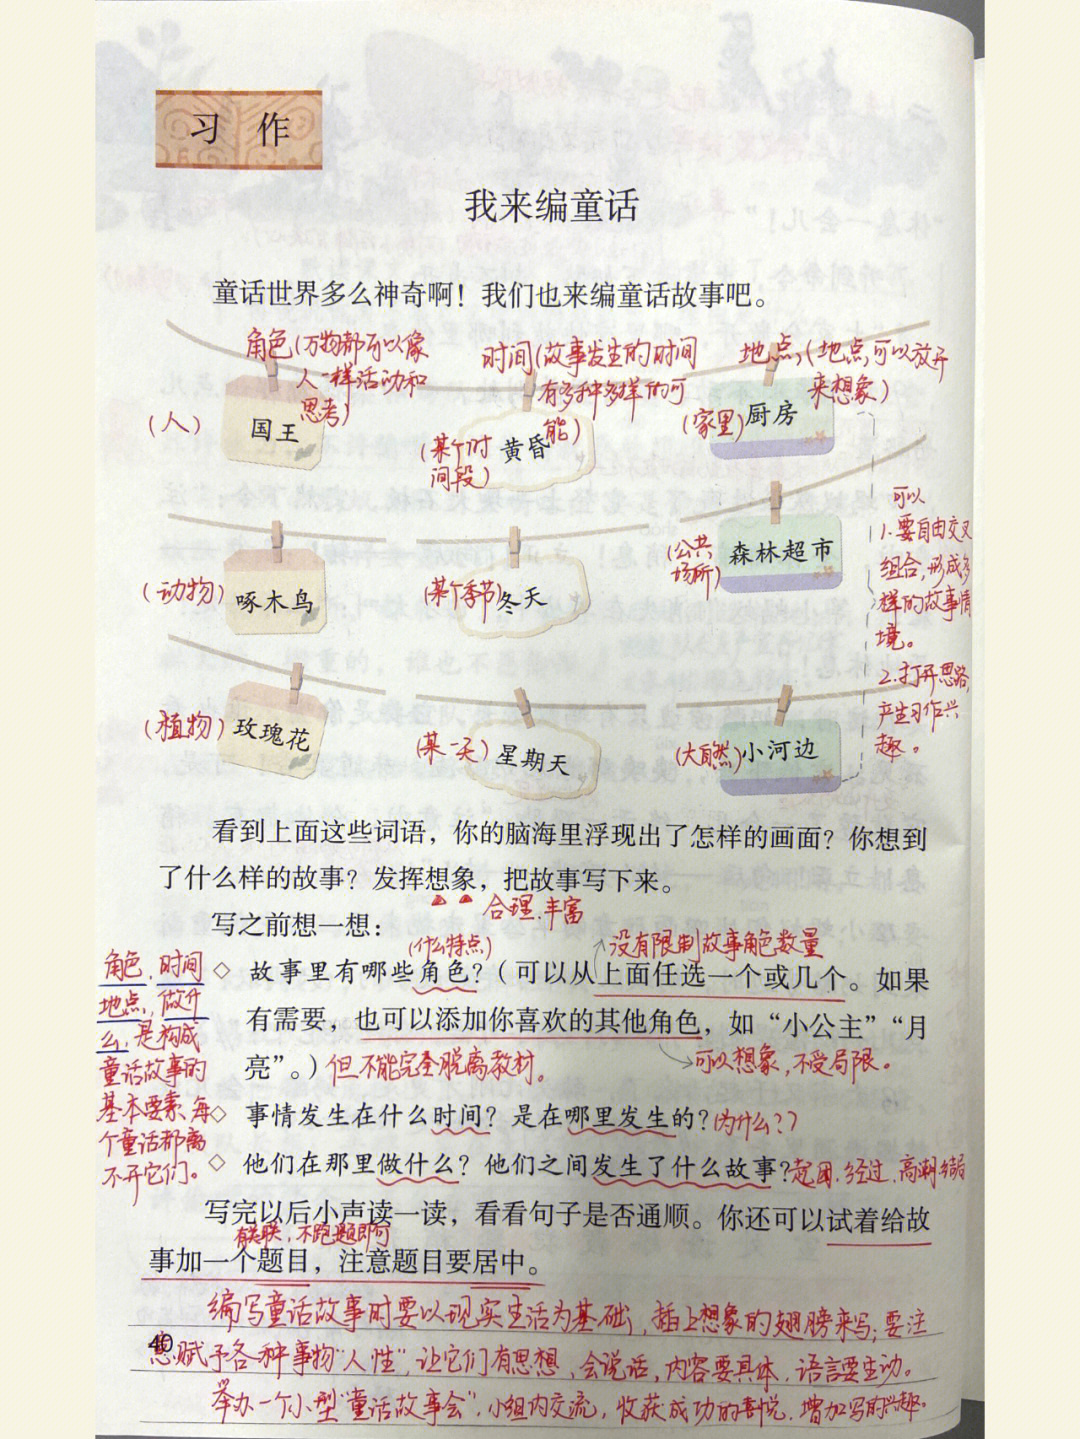 习 作
我来编童话
童话世界多么神奇啊！我们也来编童话故事吧。
角色(万物都可以像
人一样活动和
思考)
时间(故事发生的时间
有多种多样的可
能)
地点,(地点可以放开
来想象)
(人)
国王
(某个时
间段)
黄昏
(家里)
厨房
(动物)
啄木鸟
(某个季节)
冬天
(公共
场所)
森林超市
(植物)
玫瑰花
(某一天)
星期天
(大自然)
小河边
可以
1.要自由交叉
组合,形成多
样的故事情
境。
2.打开思路,
产生习作兴
趣。
看到上面这些词语，你的脑海里浮现出了怎样的画面？你想到
了什么样的故事？发挥想象，把故事写下来。
合理.丰富
写之前想一想：
(什么特点)
没有限制故事角色数量
◇ 故事里有哪些角色？（可以从上面任选一个或几个。如果
有需要，也可以添加你喜欢的其他角色，如“小公主”“月
亮”。）但不能完全脱离教材。
可以想象,不受局限。
角色.时间
地点,做什
么,是构成
童话故事的
基本要素,每
个童话都离
不开它们。
◇ 事情发生在什么时间？是在哪里发生的？(为什么?)
◇ 他们在那里做什么？他们之间发生了什么故事？起因.经过.高潮.结局
写完以后小声读一读，看看句子是否通顺。你还可以试着给故
有关联,不跑题即可
事加一个题目，注意题目要居中。
编写童话故事时要以现实生活为基础,插上想象的翅膀来写;要注
意赋予各种事物“人性”,让它们有思想,会说话,内容要具体,语言要生动。
举办一个小型“童话故事会”,小组内交流,收获成功的喜悦,增加写的兴趣。
40